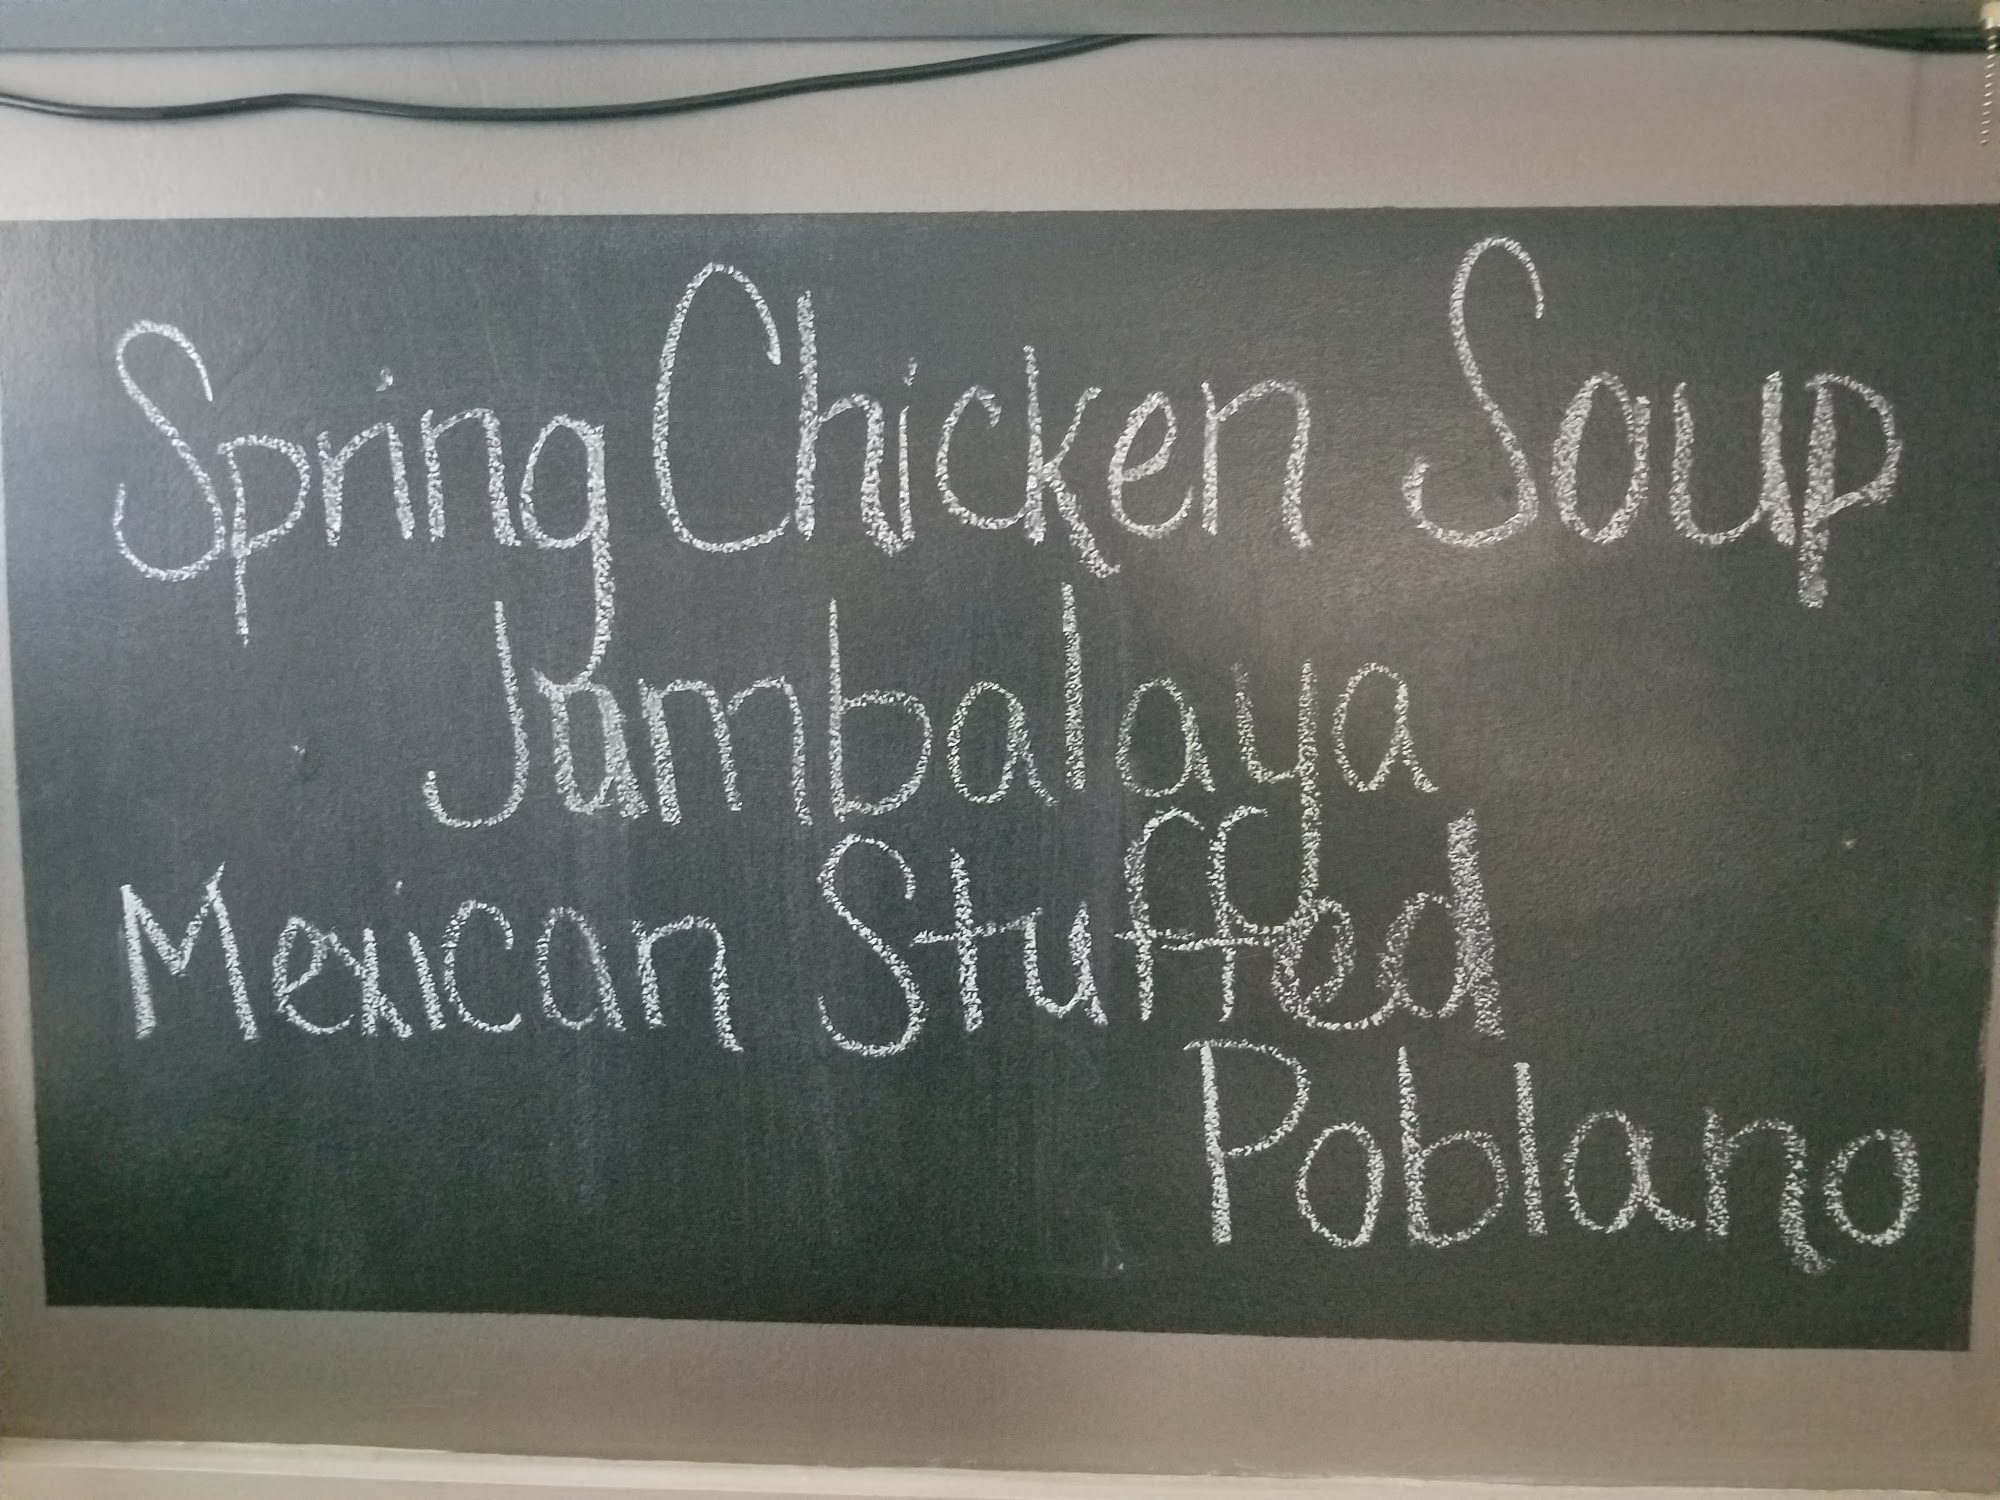 Spring Chicken Soup
Jambalaya
Mexican Stuffed
Poblano